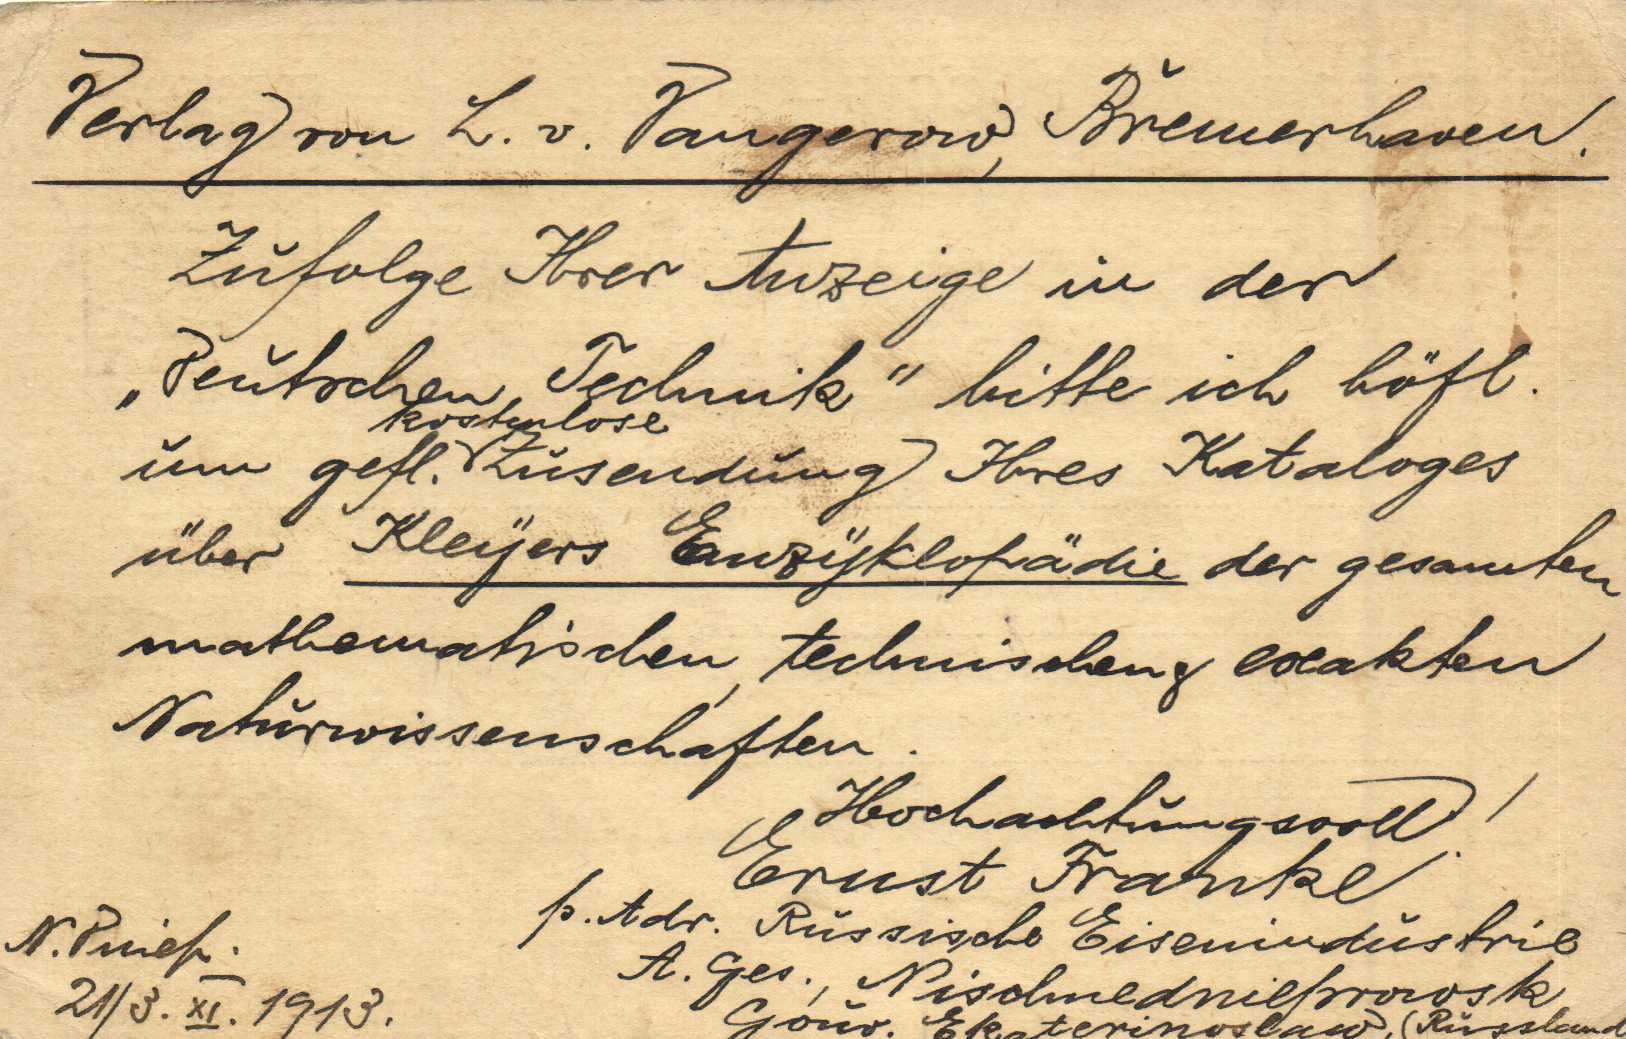 Verlag von L. v. Vangerow, Bremerhaven.
Zufolge Ihrer Anzeige in der
„Deutschen Technik“ bitte ich höfl.
kostenlose
um gefl. Zusendung Ihres Kataloges
über Kleyers Enzyklopädie der gesamten
mathematischen, technischen & exakten
Naturwissenschaften.
Hochachtungsvoll!
Ernst Franke
p. Adr. Russische Eisenindustrie
A. Ges., Nischnednieprowsk
Gouv. Ekaterinoslaw, (Russland
N. Dniep.
21/3. XI. 1913.